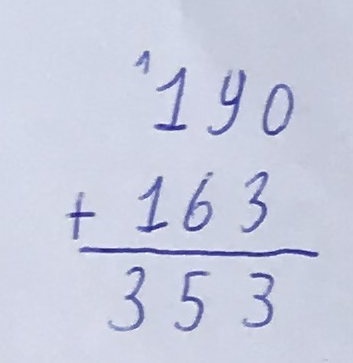 1
190
+ 163
353